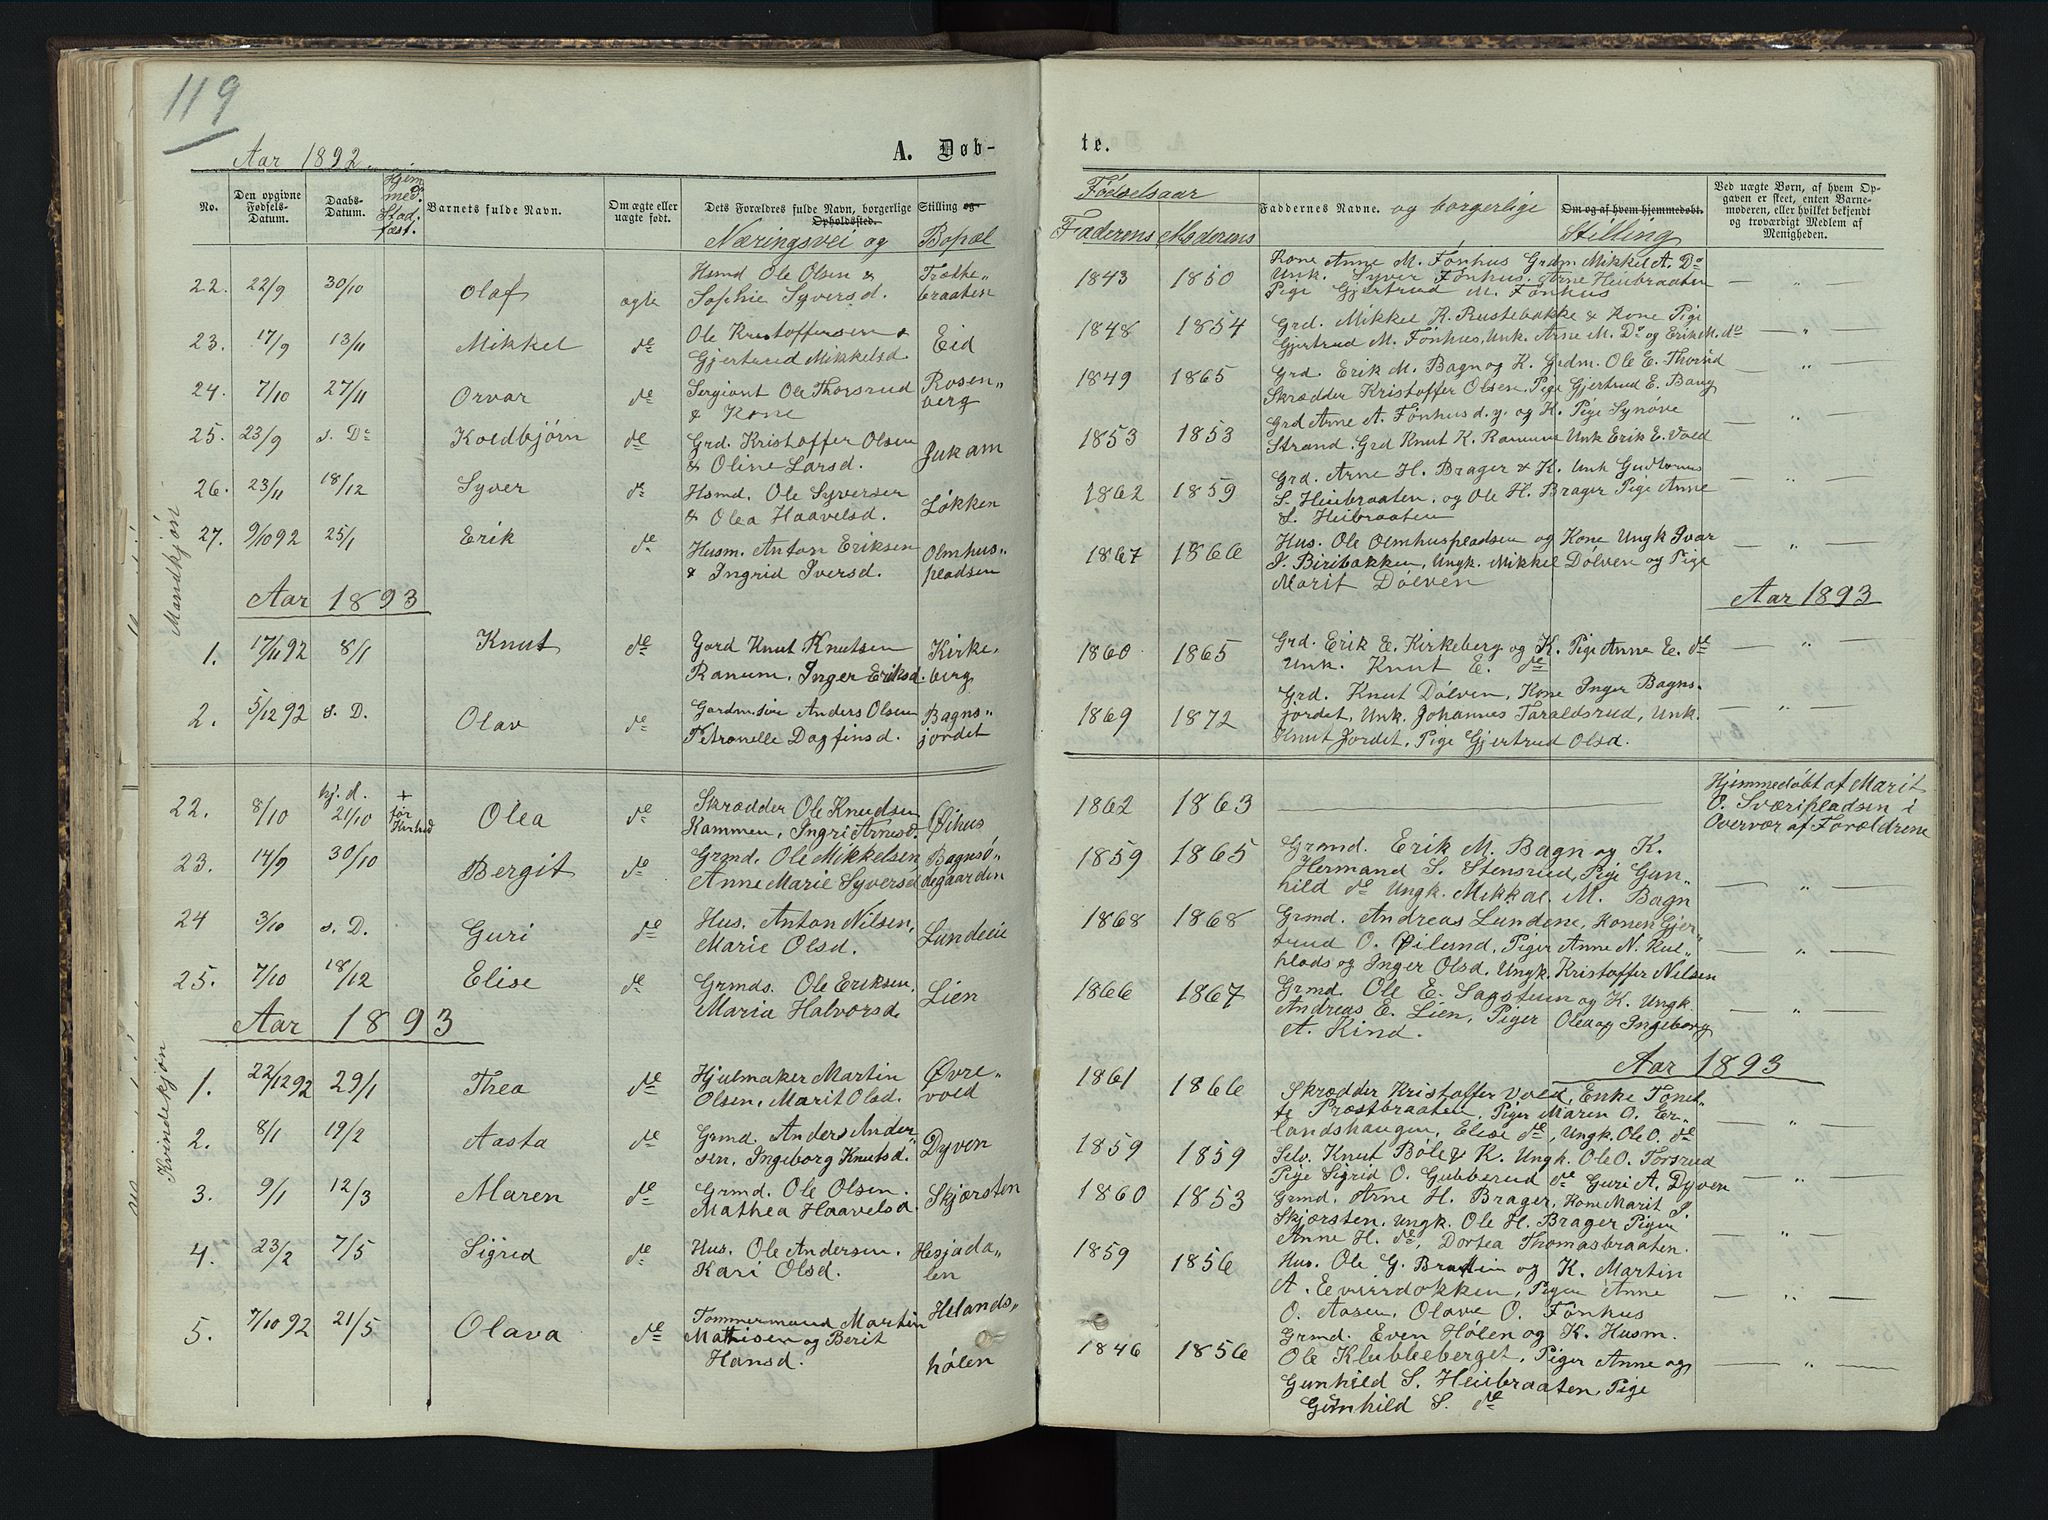 119
Aar 1892.
A. Døb-
No.
Den opgivne Fødsels-Datum.
Daabs-Datum.
Hjem med. Dr Stadfæst.
Barnets fulde Navn.
Om ægte eller uægte født.
Dets Forældres fulde Navn, borgerlige Stilling og Opholdssted.
Næringsvei og Bopæl
Mandkjøn
22. 22/9 30/10 Olaf ægte Hsmd Ole Olsen & Trætte„
Sophie Syversd. braaten
23. 17/9 13/11 Mikkel de Ole Kristoffersen & Eid
Gjertrud Mikkelsd.
24. 7/10 27/11 Orvar de Sergiant Ole Thorsrud Rosen„
& Kone berg
25. 23/9 s. D. Koldbjørn de Grd. Kristoffer Olsen Jukam
& Oline Larsd.
26. 23/11 18/12 Syver de Hsmd. Ole Syversen Løkken
& Olea Haavelsd.
27. 9/10 92 25/1 Erik de Husm. Anton Eriksen Olmhus„
& Ingrid Iversd. pladsen
Aar 1893
1. 17/11 92 8/1 Knut de Gard Knut Knutsen Kirke,
Ranum, Inger Eriksd. berg
2. 5/12 92 s. D. Olav de Gardm.søn Anders Olsen Bagns„
Petronelle Dagfinsd. jordet
Kvindekjøn
22. 8/10 hj. d. 21/10 + før Olea de Skrædder Ole Knudsen Øihus
Kammen, Ingri Arnesd.
23. 14/9 30/10 Bergit de Grmd. Ole Mikkelsen Bagnsø„
Anne Marie Syversd degaarden
24 3/10 s. D. Guri de Hus. Anton Nilsen, Lundeie
Marie Olsd.
25. 7/10 18/12 Elise de Grmds. Ole Eriksen, Lien
Maria Halvorsd.
Aar 1893
1. 22/12 92 29/1 Thea de Hjulmaker Martin Øvre-
Olsen, Marit Olsd. vold
2. 8/1 19/2 Aasta de Grmd. Anders Ander Dyven
sen, Ingeborg Knutsd.
3. 9/1 12/3 Maren de Grmd. Ole Olsen. Skjærsten
Mathea Haavelsd.
4. 23/2 7/5 Sigrid de Hus. Ole Andersen. Hesjada„
Kari Olsd. len
5. 7/10 92 21/5 Olava de Tømmermand Martin Helands„
Mathisen og Berit
Hansd. hølen
te.
Fødselsaar
Faderens Moderens
Faddernes Navne. og borgerlige Om og af hvem hjemmedøbt.
Stilling
Ved uægte Børn, af hvem Op-
gaven er skeet, enten Barne-
moderen, eller hvilket bekjendt
og troværdigt Medlem af
Menigheden.
1843 1850 Kone Anne M. Fønhus Grdm Mikkel A. Do
Unk. Syver Fønhus. Arne Heibraaten
Pige Gjertrud M. Fønhus
1848 1854 Grd. Mikkel K. Rustebakke & Kone Pige
Gjertrud M. Fønhus, Unk. Arne M. Do og Erik M. do
1849 1865 Grd. Erik M. Bagn og K. Grdm. Ole E. Thorsrud
Skrædder Kristoffer Olsen, Pige Gjertrud E. Bang
1853 1853 Grd Arne A. Fønhus d. y. og K. Pige Synøve
Strand. Grd Knut K. Ranum Unk Erik E. Vold
1862 1859 Grd. Arne H. Brager & K. Unk Gudbrand
S. Heibraaten, og Ole H. Brager Pige Anne
S. Heibraaten
1867 1866 Hus. Ole Olmhuspladsen og Kone Ungk Ivar
I. Biribakken, Ungk. Mikkel Dølven og Pige
Marit Dølven
Aar 1893
1860 1865 Grd. Erik E. Kirkeberg og K. Pige Anne E. de
Unk. Knut E. de
1869 1872 Grd. Knut Dølven, Kone Inger Bagns-
jordet, Unk. Johannes Taraldsrud, Unk.
Knut Jordet, Pige Gjertrud Olsd.
1862 1863 Hjemmedøbt af Marit
O. Sværipladsen i
Overvær af Forældrene
1859 1865 Grmd. Erik M. Bagn og K.
Hermand S. Stensrud, Pige Gun„
hild de Ungk. Mikkal M. Bagn
1868 1868 Grmd. Andreas Lundene, Konen Gjer„
trud O. Øilund, Piger Anne N. Kul„
plads og Inger Olsd. Ungk. Kristoffer Nilsen
1866 1867 Grmd. Ole E. Sagstuen og K. Ungk.
Andreas E. Lien, Piger Olea og Ingeborg
A. Kind.
Aar 1893
1861 1866 Skrædder Kristoffer Vold, Enke Tonet„
te Præstbraaten, Piger Maren O. Er„
landshaugen, Elise de, Ungk. Ole O. de
1859 1859 Selv. Knut Bøle & K. Ungk. Ole O. Torsrud
Pige Sigrid O. Gubberud de Guri A. Dyven
1860 1853 Grmd. Arne H. Brager, Kone Marit I.
Skjærsten, Ungk. Ole H. Brager Piger
Anne H. de, Dortea Thomasbraaten.
1859 1856 Hus. Ole G. Braaten og K. Martin
A. Evensdokken, Piger Anne
O. Aasen, Olave O. Fønhus
1846 1856 Grmd. Even Hølen og K. Husm.
Ole Klubbeberget, Piger Anne og
Gunhild S. Heibraaten, Pige
Gunhild S. de